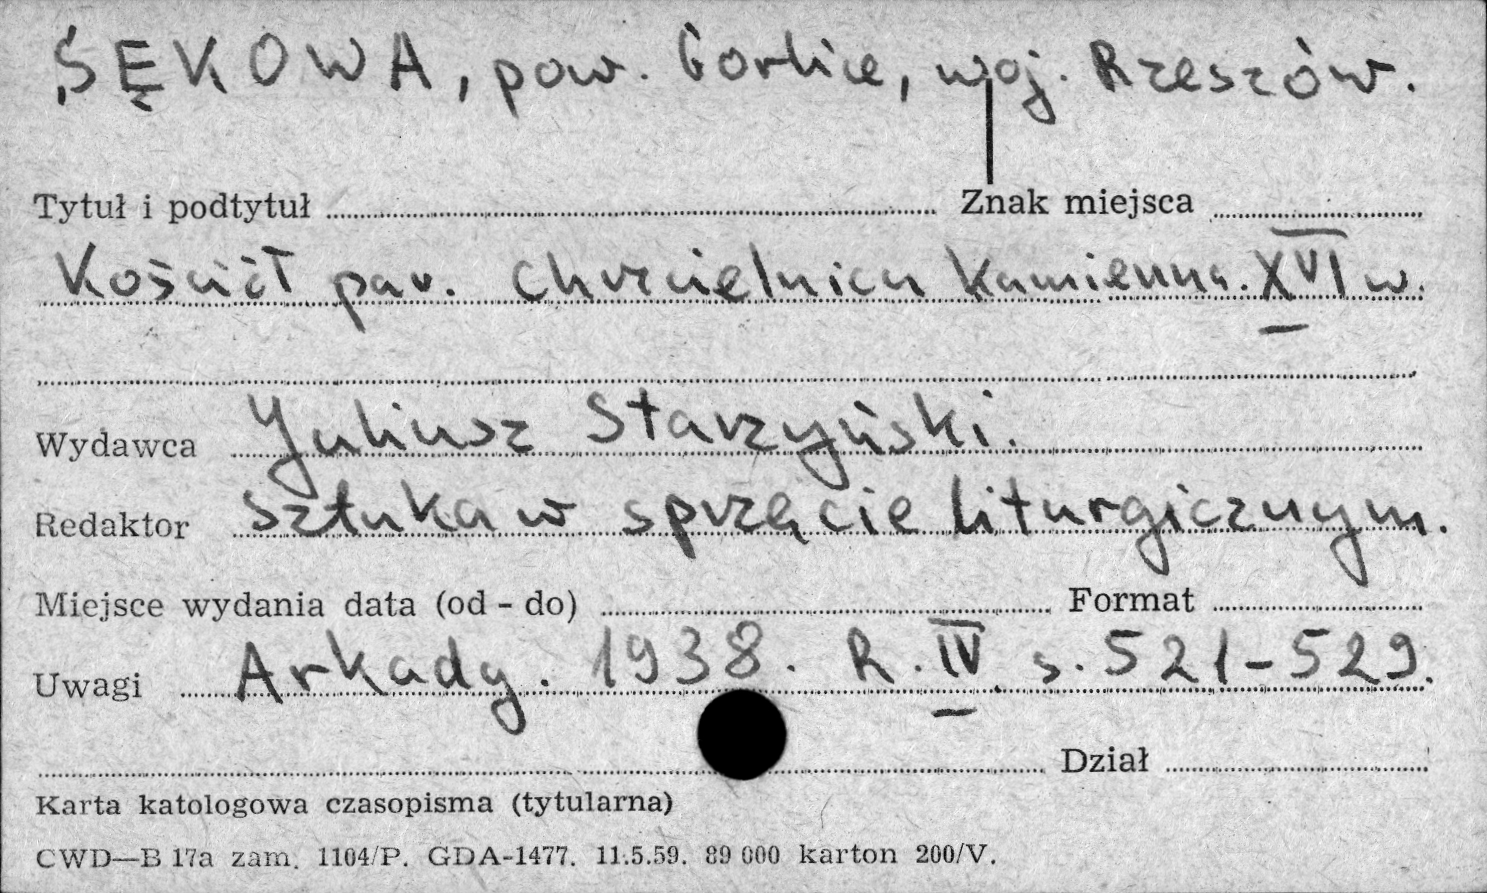 SĘKOWA, pow. Gorlice, woj. Rzeszów.
Tytuł i podtytuł Znak miejsca
Kościół par. Chrzcielnica kamienna. XVI w.
Wydawca Juliusz Starzyński.
Redaktor Sztuka w sprzęcie liturgicznym.
Miejsce wydania data (od - do) Format
Uwagi Arkady. 1938. R. IV. s. 521-529.
Dział
Karta katologowa czasopisma (tytularna)
CWD—B 17a zam. 1104/P. GDA-1477. 11.5.59. 89 000 karton 200/V.